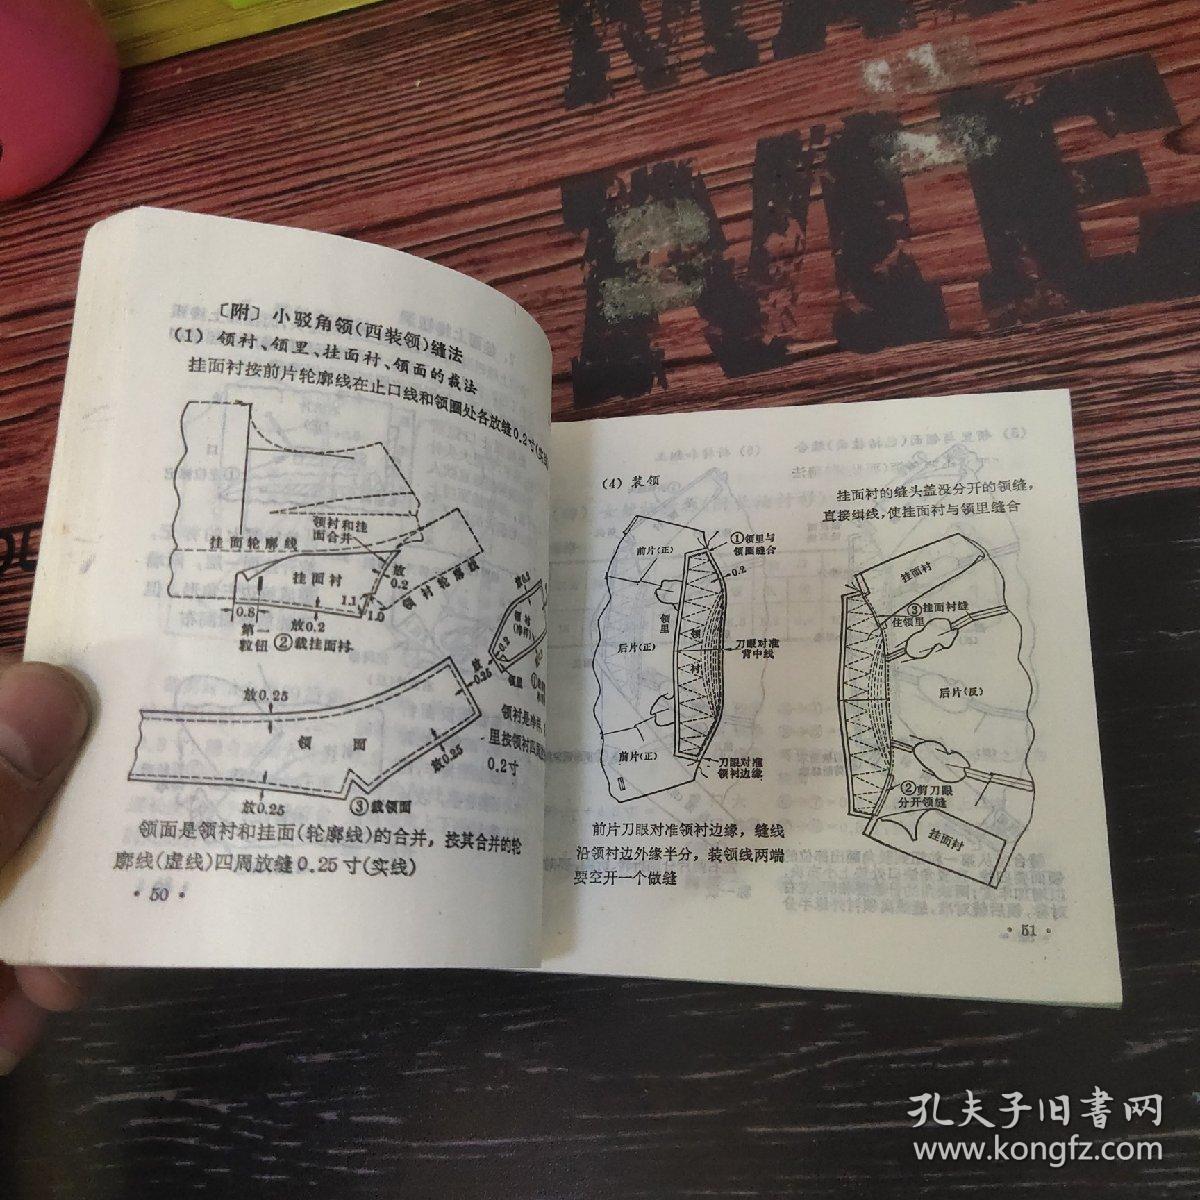 〔附〕小驳角领(西装领)缝法
(1) 领衬、领里、挂面衬、领面的裁法
挂面衬按前片轮廓线在止口线和领圈处各放缝0.2寸(实线
领衬和挂
面合并
挂面轮廓线
挂面衬
放
0.2
领衬轮廓线
0.8
放0.2
1.1
1.0
第一
粒钮
②裁挂面衬
放0.2
领衬
0.2
领里
放
0.25
放0.25
领 面
放0.25
放0.25
③裁领面
领衬是净样,
里按领衬四周
0.2寸
领面是领衬和挂面(轮廓线)的合并，按其合并的轮
廓线(虚线)四周放缝0.25寸(实线)
· 50 ·
(4) 装领
前片(正)
①领里与
领圈缝合
0.2
领里
领衬
后片(正)
刀眼对准
背中线
前片(正)
刀眼对准
领衬边缘
前片刀眼对准领衬边缘，缝线
沿领衬边外缘半分，装领线两端
要空开一个做缝
挂面衬的缝头盖没分开的领缝，
直接缉线，使挂面衬与领里缝合
挂面衬
③挂面衬缝
住领里
后片(反)
②剪刀眼
分开领缝
挂面衬
· 51 ·
孔夫子旧书网
www.kongfz.com